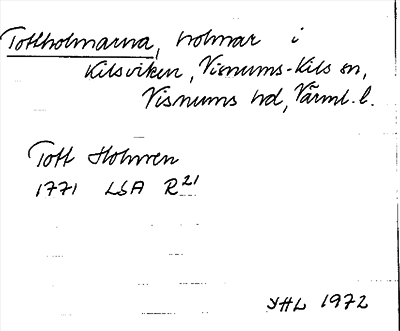 Tottholmarna, holmar i
Kilsviken, Visnums-Kils sn,
Visnums hd, Värml. l.
Tott Holmen
1771 LSA R21
YHL 1972